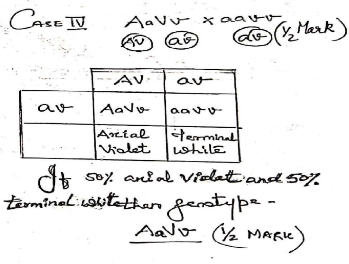 CASE IV AaVv x aavv
AV av av (1/2 Mark)
AV av
av AaVv aavv
Axial Terminal
Violet white
If 50% axial violet and 50%
terminal white then genotype -
AaVv (1/2 MARK)